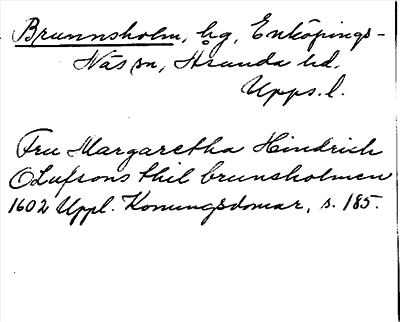 Brunnsholm, hg, Enköpings-
Näs sn, Åsunda hd.
Upps. l.
Fru Margaretha Hindrich
Olufsons thil brunsholmen
1602 Uppl. Konungsdomar, s. 185.